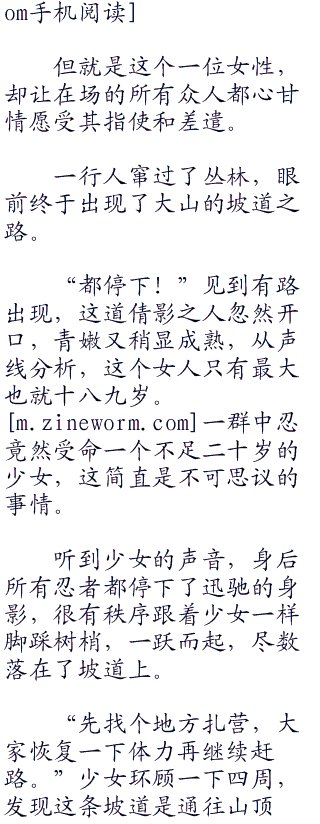 om手机阅读]
但就是这个一位女性，
却让在场的所有众人都心甘
情愿受其指使和差遣。
一行人窜过了丛林，眼
前终于出现了大山的坡道之
路。
“都停下！”见到有路
出现，这道倩影之人忽然开
口，青嫩又稍显成熟，从声
线分析，这个女人只有最大
也就十八九岁。
[m.zineworm.com]一群中忍
竟然受命一个不足二十岁的
少女，这简直是不可思议的
事情。
听到少女的声音，身后
所有忍者都停下了迅驰的身
影，很有秩序跟着少女一样
脚踩树梢，一跃而起，尽数
落在了坡道上。
“先找个地方扎营，大
家恢复一下体力再继续赶
路。”少女环顾一下四周，
发现这条坡道是通往山顶